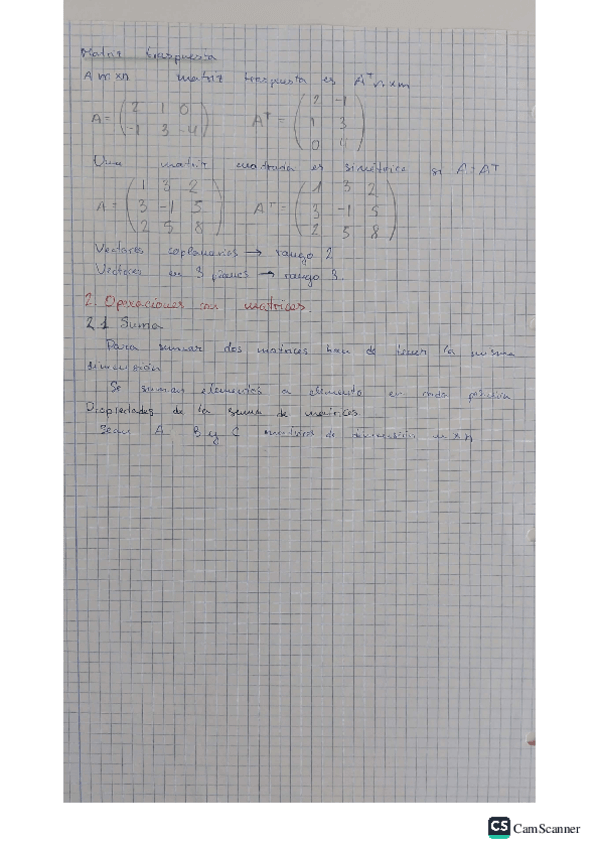 Matriz traspuesta
A m×n matriz traspuesta es Aᵀ n×m
A = ( 2 1 0 ) Aᵀ = ( 2 -1 )
( -1 3 -4 ) ( 1 3 )
( 0 4 )
Una matriz cuadrada es simétrica si A=Aᵀ
A = ( 1 3 2 ) Aᵀ = ( 1 3 2 )
( 3 -1 5 ) ( 3 -1 5 )
( 2 5 8 ) ( 2 5 8 )
Vectores coplanarios → rango 2
Vectores en 3 planos → rango 3.
2. Operaciones con matrices.
2.1 Suma
Para sumar dos matrices han de tener la misma
dimensión
Se suman elemento a elemento en cada posición
Propiedades de la suma de matrices
Sean A B y C matrices de dimensión m×n
CS CamScanner